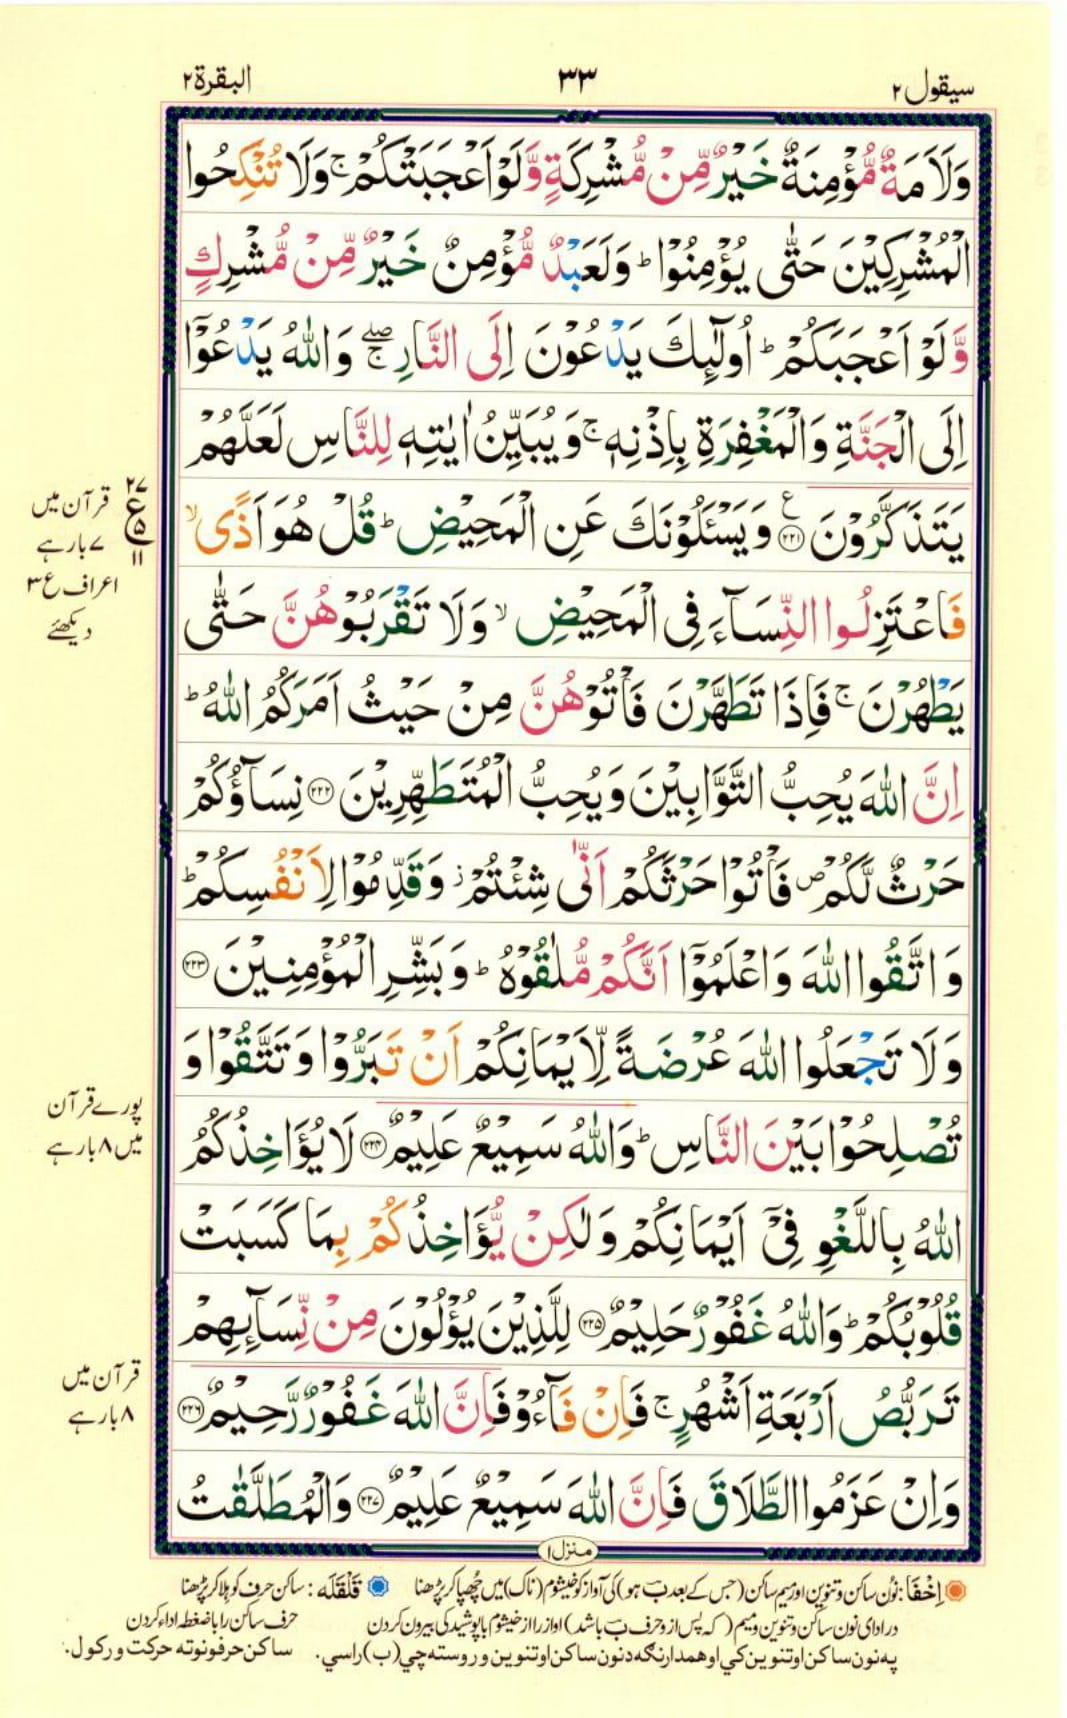 سیقول ۲
۳۳
البقرة ۲
وَلَاَمَةٌ مُّؤْمِنَةٌ خَيْرٌ مِّنْ مُّشْرِكَةٍ وَّلَوْ اَعْجَبَتْكُمْ ۚ وَلَا تُنْكِحُوا
الْمُشْرِكِيْنَ حَتّٰى يُؤْمِنُوْا ؕ وَلَعَبْدٌ مُّؤْمِنٌ خَيْرٌ مِّنْ مُّشْرِكٍ
وَّلَوْ اَعْجَبَكُمْ ؕ اُولٰٓئِكَ يَدْعُوْنَ اِلَى النَّارِ ۖۚ وَاللّٰهُ يَدْعُوْٓا
اِلَى الْجَنَّةِ وَالْمَغْفِرَةِ بِاِذْنِهٖ ۚ وَيُبَيِّنُ اٰيٰتِهٖ لِلنَّاسِ لَعَلَّهُمْ
يَتَذَكَّرُوْنَ ﴿۲۲۱﴾ وَيَسْـَٔلُوْنَكَ عَنِ الْمَحِيْضِ ؕ قُلْ هُوَ اَذًى ۙ
فَاعْتَزِلُوا النِّسَآءَ فِى الْمَحِيْضِ ۙ وَلَا تَقْرَبُوْهُنَّ حَتّٰى
يَطْهُرْنَ ۚ فَاِذَا تَطَهَّرْنَ فَاْتُوْهُنَّ مِنْ حَيْثُ اَمَرَكُمُ اللّٰهُ ؕ
اِنَّ اللّٰهَ يُحِبُّ التَّوَّابِيْنَ وَيُحِبُّ الْمُتَطَهِّرِيْنَ ﴿۲۲۲﴾ نِسَآؤُكُمْ
حَرْثٌ لَّكُمْ ۪ فَاْتُوْا حَرْثَكُمْ اَنّٰى شِئْتُمْ ؗ وَقَدِّمُوْا لِاَنْفُسِكُمْ ؕ
وَاتَّقُوا اللّٰهَ وَاعْلَمُوْٓا اَنَّكُمْ مُّلٰقُوْهُ ؕ وَبَشِّرِ الْمُؤْمِنِيْنَ ﴿۲۲۳﴾
وَلَا تَجْعَلُوا اللّٰهَ عُرْضَةً لِّاَيْمَانِكُمْ اَنْ تَبَرُّوْا وَتَتَّقُوْا وَ
تُصْلِحُوْا بَيْنَ النَّاسِ ؕ وَاللّٰهُ سَمِيْعٌ عَلِيْمٌ ﴿۲۲۴﴾ لَا يُؤَاخِذُكُمُ
اللّٰهُ بِاللَّغْوِ فِىْٓ اَيْمَانِكُمْ وَلٰكِنْ يُّؤَاخِذُكُمْ بِمَا كَسَبَتْ
قُلُوْبُكُمْ ؕ وَاللّٰهُ غَفُوْرٌ حَلِيْمٌ ﴿۲۲۵﴾ لِلَّذِيْنَ يُؤْلُوْنَ مِنْ نِّسَآئِهِمْ
تَرَبُّصُ اَرْبَعَةِ اَشْهُرٍ ۚ فَاِنْ فَآءُوْ فَاِنَّ اللّٰهَ غَفُوْرٌ رَّحِيْمٌ ﴿۲۲۶﴾
وَاِنْ عَزَمُوا الطَّلَاقَ فَاِنَّ اللّٰهَ سَمِيْعٌ عَلِيْمٌ ﴿۲۲۷﴾ وَالْمُطَلَّقٰتُ
۲۷
ع
۵
۱۱
قرآن میں
۷ بار ہے
اعراف ع ۳
دیکھئے
پورے قرآن
میں ۸ بار ہے
قرآن میں
۸ بار ہے
منزل ۱
اِخْفَا: نون ساکن وتنوین اور میم ساکن (جس کے بعد بَ ہو) کی آواز کو خیشوم (ناک) میں چھپا کر پڑھنا
قَلْقَلَه: ساکن حرف کو ہلا کر پڑھنا
در ادای نون ساکن وتنوین ومیم (که پس از و حرف بَ باشد) اواز را از خیشوم با پوشیدگی بیرون کردن
حرف ساکن را با ضغطه اداء کردن
په نون ساکن او تنوین کي او همدارنګه د نون ساکن او تنوین وروسته چي (ب) راسي.
ساکن حرفونو ته حرکت ورکول.